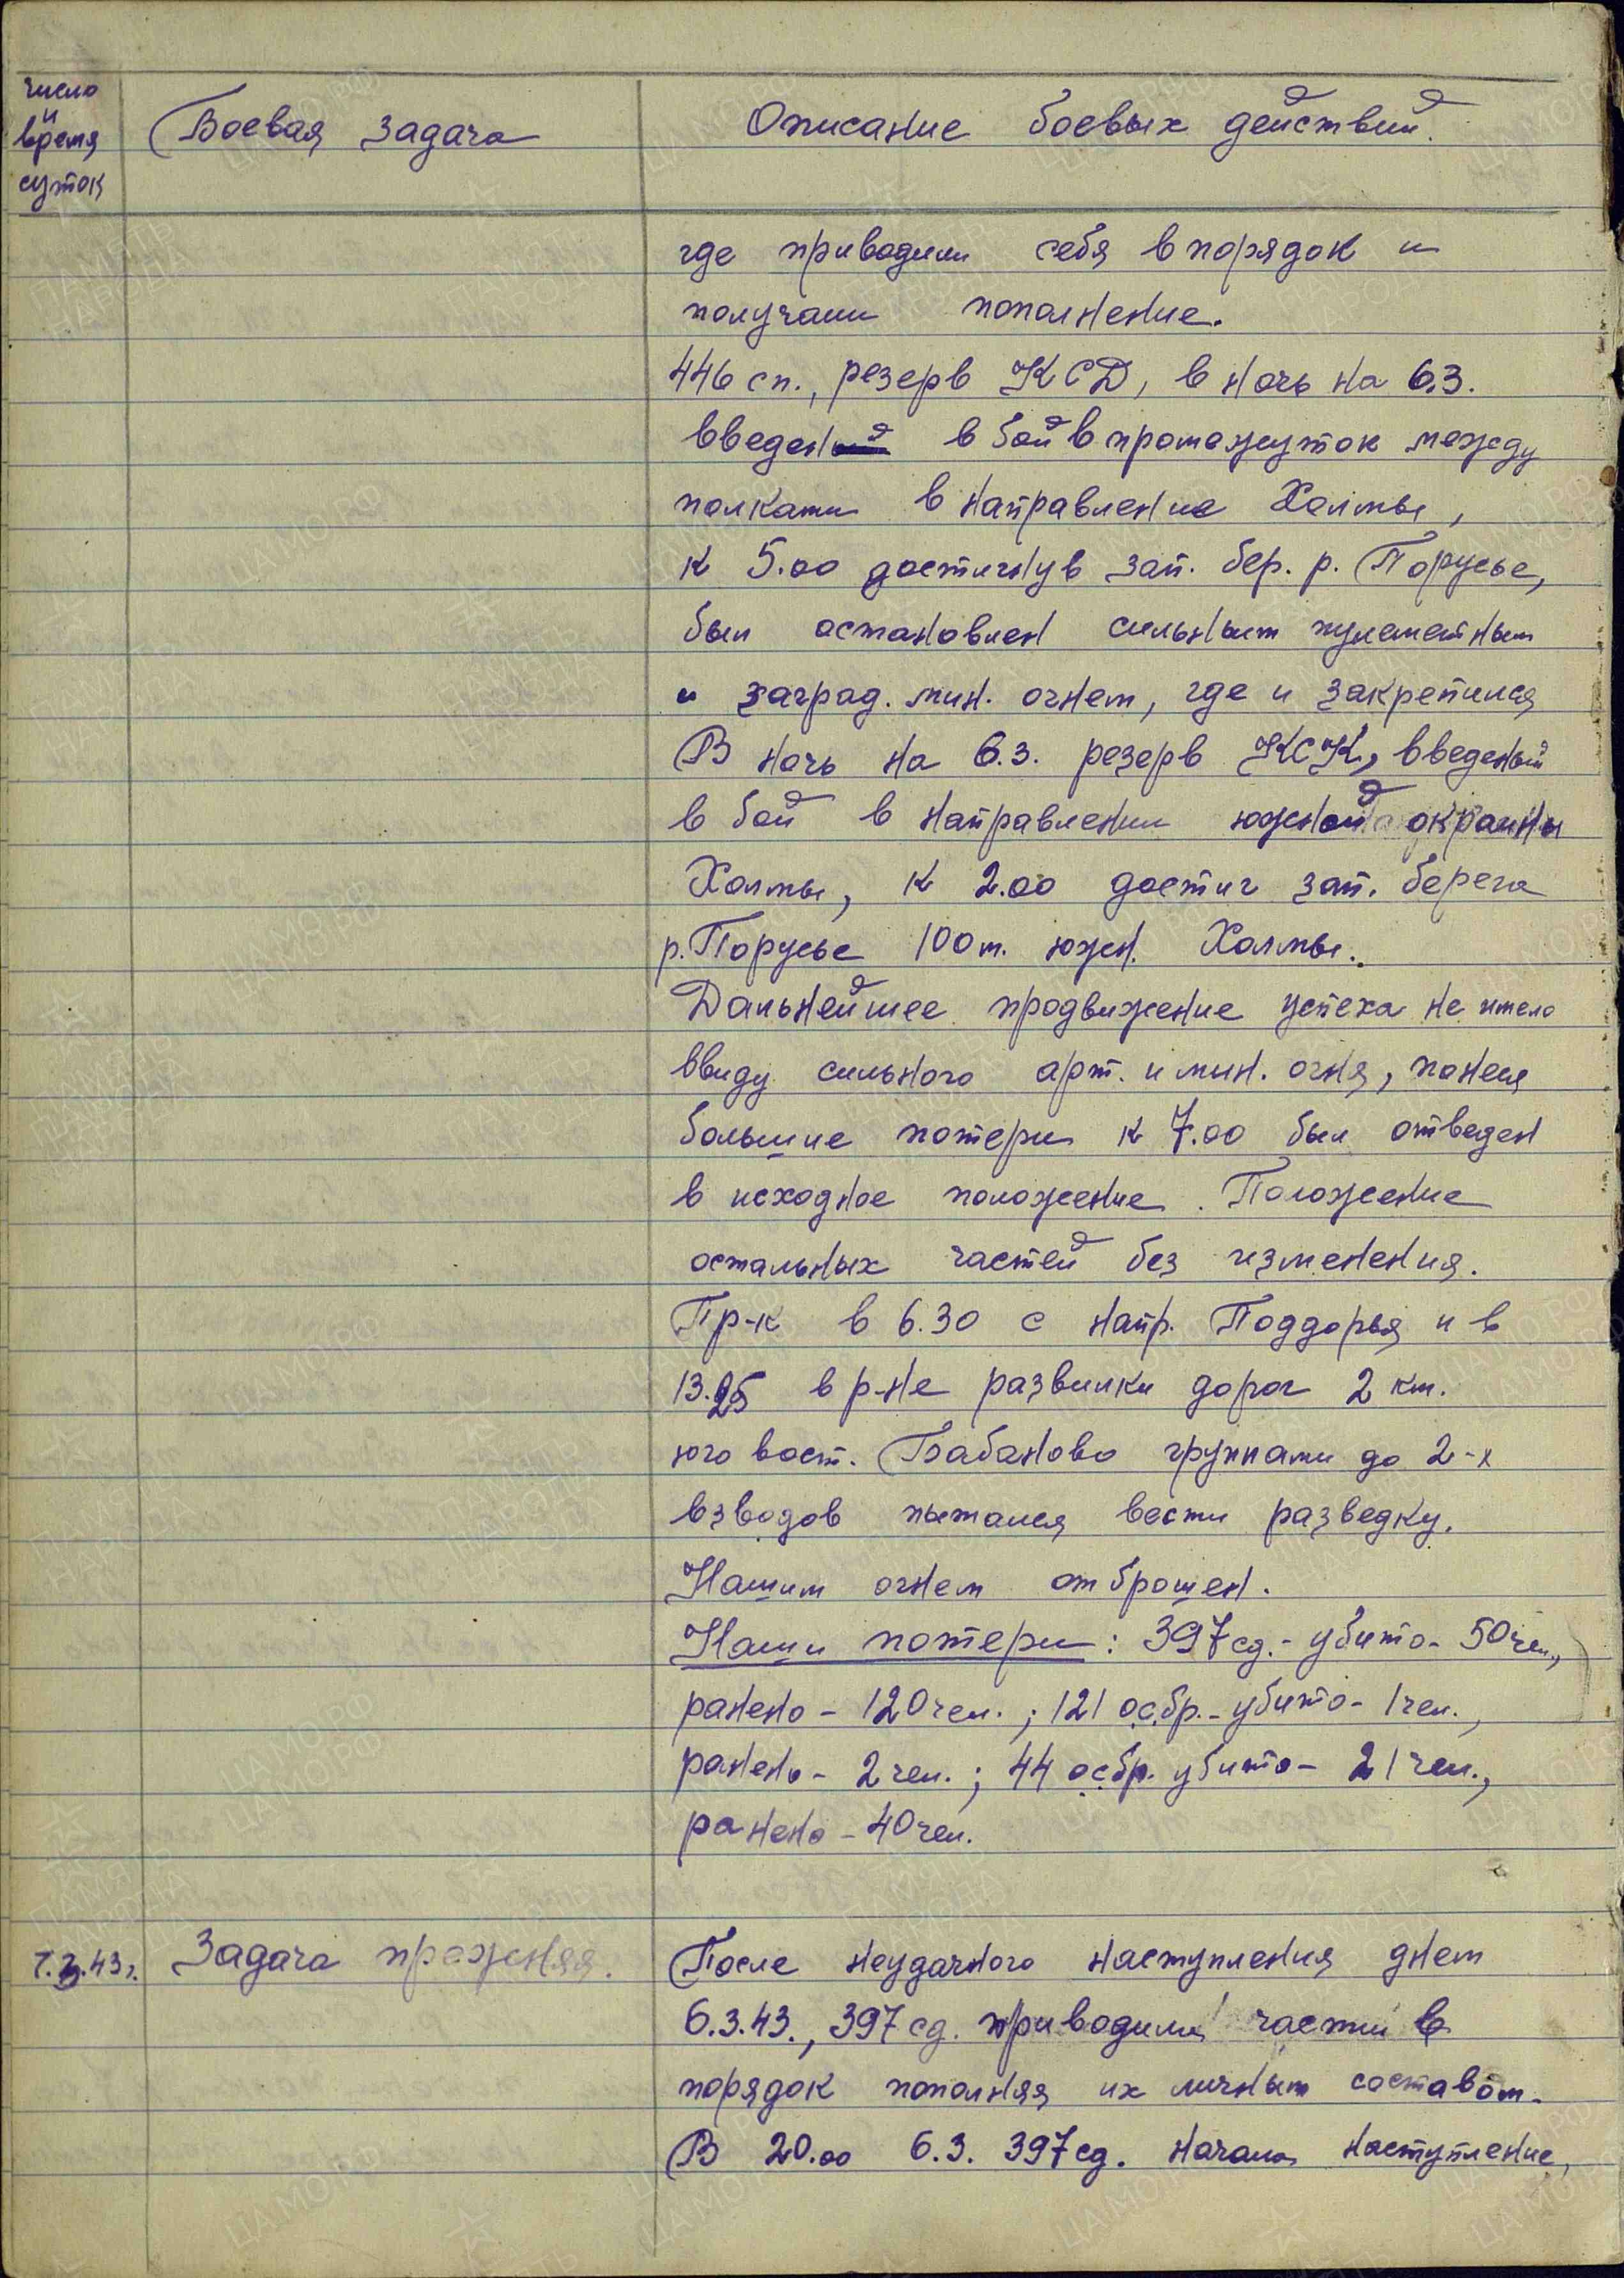 число
и
время
суток
Боевая задача
Описание боевых действий.
где приводили себя в порядок и
получали пополнение.
446 сп., резерв КСД, в ночь на 6.3.
введен в бой в промежуток между
полками в направление Холмы,
к 5.00 достигнув зап. бер. р. Порусье,
был остановлен сильным пулеметным
и заград. мин. огнем, где и закрепился
В ночь на 6.3. резерв КСК, введеный
в бой в направлении южной окраины
Холмы, к 2.00 достиг зап. берега
р. Порусье 100 м. южн. Холмы.
Дальнейшее продвижение успеха не имело
ввиду сильного арт. и мин. огня, понеся
большие потери к 7.00 был отведен
в исходное положение. Положение
остальных частей без изменения.
Пр-к в 6.30 с напр. Поддорья и в
13.25 в р-не развилки дорог 2 км.
юго вост. Бабаново группами до 2-х
взводов пытался вести разведку.
Нашим огнем отброшен.
Наши потери: 397 сд. - убито - 50 чел.,
ранено - 120 чел.; 121 осбр. - убито - 1 чел.,
ранено - 2 чел.; 44 осбр. убито - 21 чел.,
ранено - 40 чел.
7.3.43 г.
Задача прежняя.
После неудачного наступления днем
6.3.43., 397 сд. приводила части в
порядок пополняя их личным составом.
В 20.00 6.3. 397 сд. начала наступление,